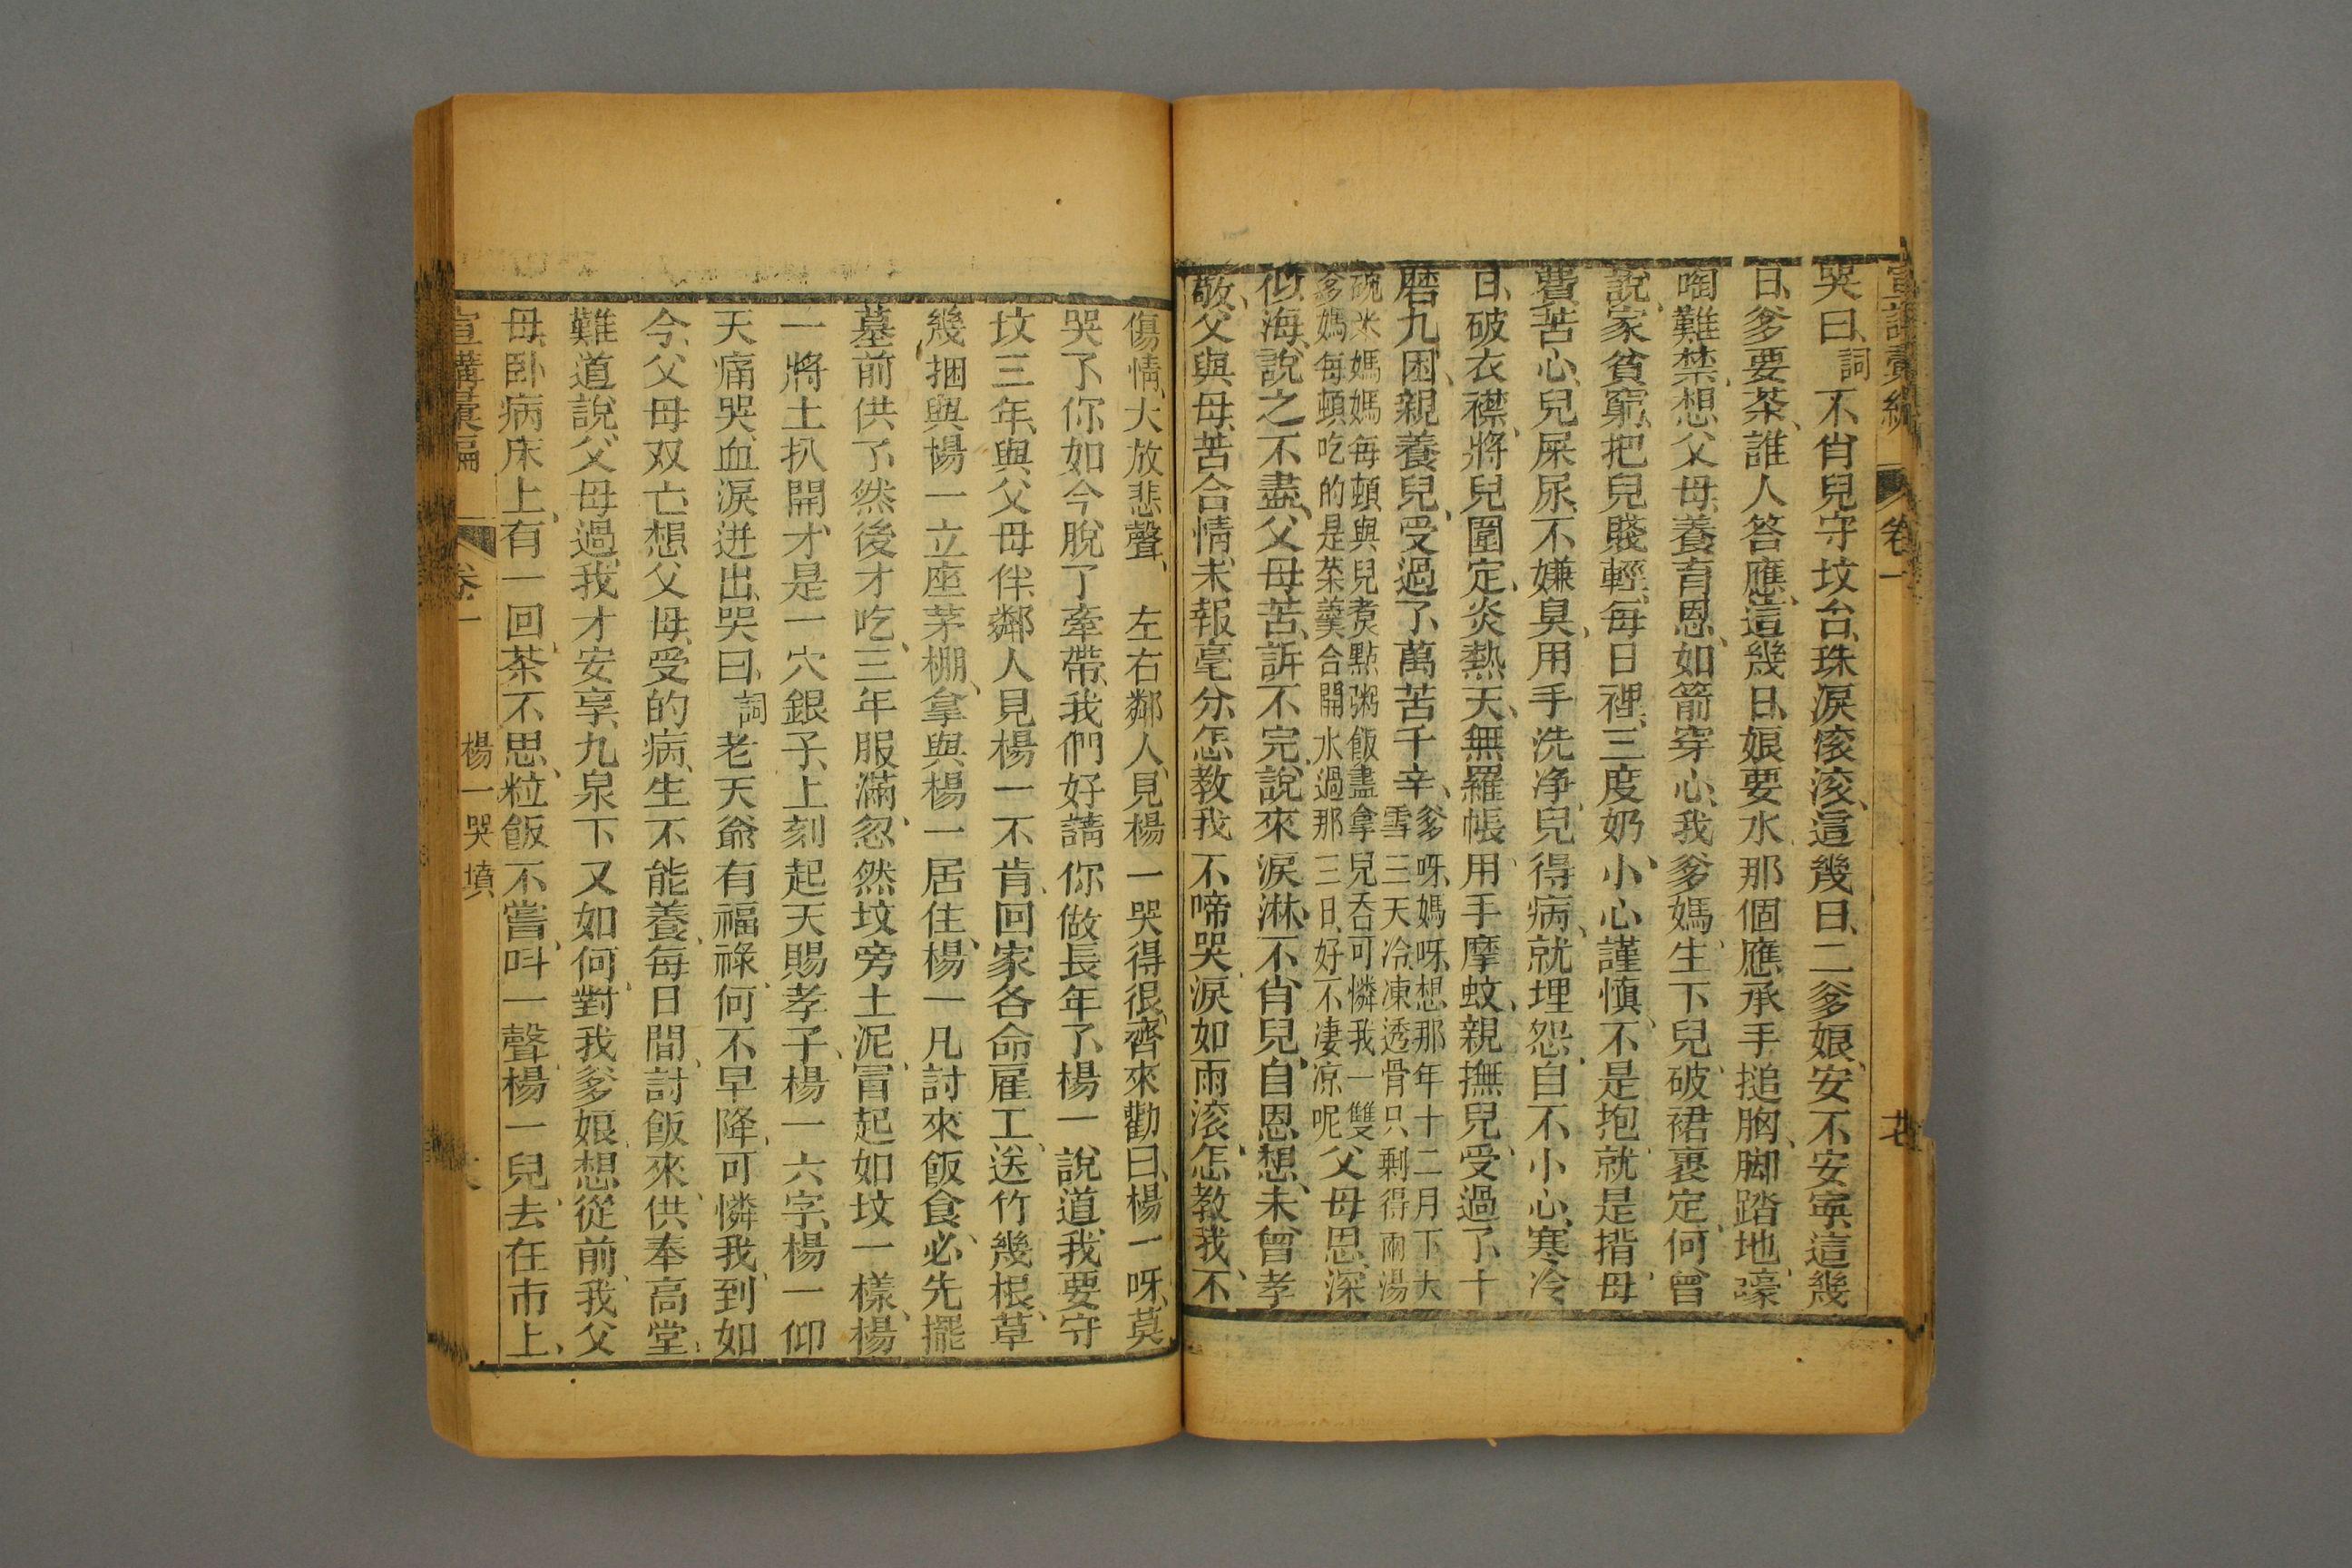 宣講彙編 卷一 廿七
哭曰、詞不肖兒守坟台、珠淚滚滚、這幾日、二爹娘、安不安寧、這幾
日、爹要茶、誰人答應、這幾日、娘要水、那個應承、手搥胸、脚踏地、嚎
啕難禁、想父母、養育恩、如箭穿心、我爹媽、生下兒、破裙裹定、何曾
說、家貧窮、把兒賤輕、每日裡、三度奶、小心謹慎、不是抱、就是揹、母
費苦心、兒屎尿、不嫌臭、用手洗净、兒得病、就埋怨、自不小心、寒冷
日、破衣襟、將兒圍定、炎熱天、無羅帳、用手摩蚊、親撫兒、受過了、十
磨九困、親養兒、受過了、萬苦千辛、爹呀、媽呀、想那年十二月下大
雪三天、冷凍透骨、只剩得兩湯
碗米、媽媽每頓與兒煮點粥飯、盡拿兒吞、可憐我一雙
爹媽、每頓吃的是菜羹合開水、過那三日、好不凄凉呢、父母思、深
似海、說之不盡、父母苦、訴不完、說來淚淋、不肖兒、自恩想、未曾孝
敬、父與母、苦合情、未報毫分、怎教我、不啼哭、淚如雨滚、怎教我、不
傷情、大放悲聲、 左右鄰人、見楊一哭得很、齊來勸曰、楊一呀、莫
哭了、你如今脫了牽帶、我們好請你做長年了、楊一說道、我要守
坟三年、與父母伴、鄰人見楊一不肯回家、各命雇工、送竹幾根、草
幾捆、與楊一立座茅棚、拿與楊一居住、楊一凡討來飯食、必先擺
墓前供了、然後才吃、三年服滿、忽然坟旁土泥、冒起如坟一樣、楊
一將土扒開、才是一穴銀子、上刻起天賜孝子、楊一六字、楊一仰
天痛哭、血淚迸出、哭曰、詞老天爺、有福祿、何不早降、可憐我、到如
今、父母双亡、想父母、受的病、生不能養、每日間、討飯來、供奉高堂、
難道說、父母過、我才安享、九泉下、又如何、對我爹娘、想從前、我父
母、卧病床上、有一回、茶不思、粒飯不嘗、叫一聲、楊一兒、去在市上、
宣講彙編 卷一 楊一哭墳